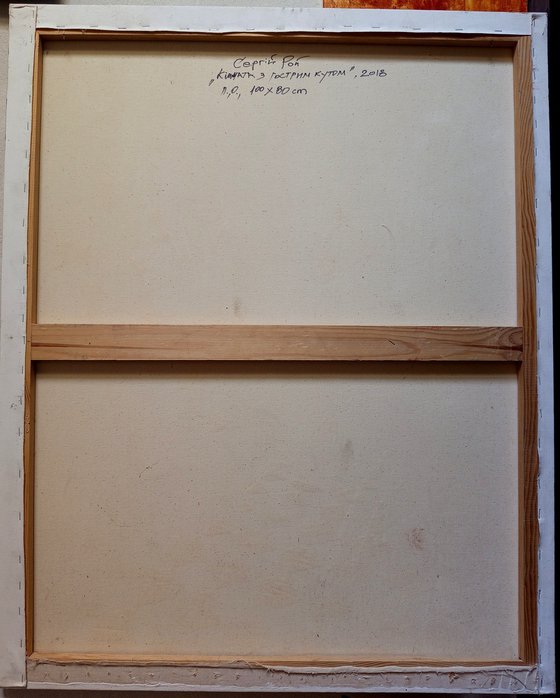 Сергій Рой
„Кімната з гострим кутом", 2018
п,о, 100х80 cm